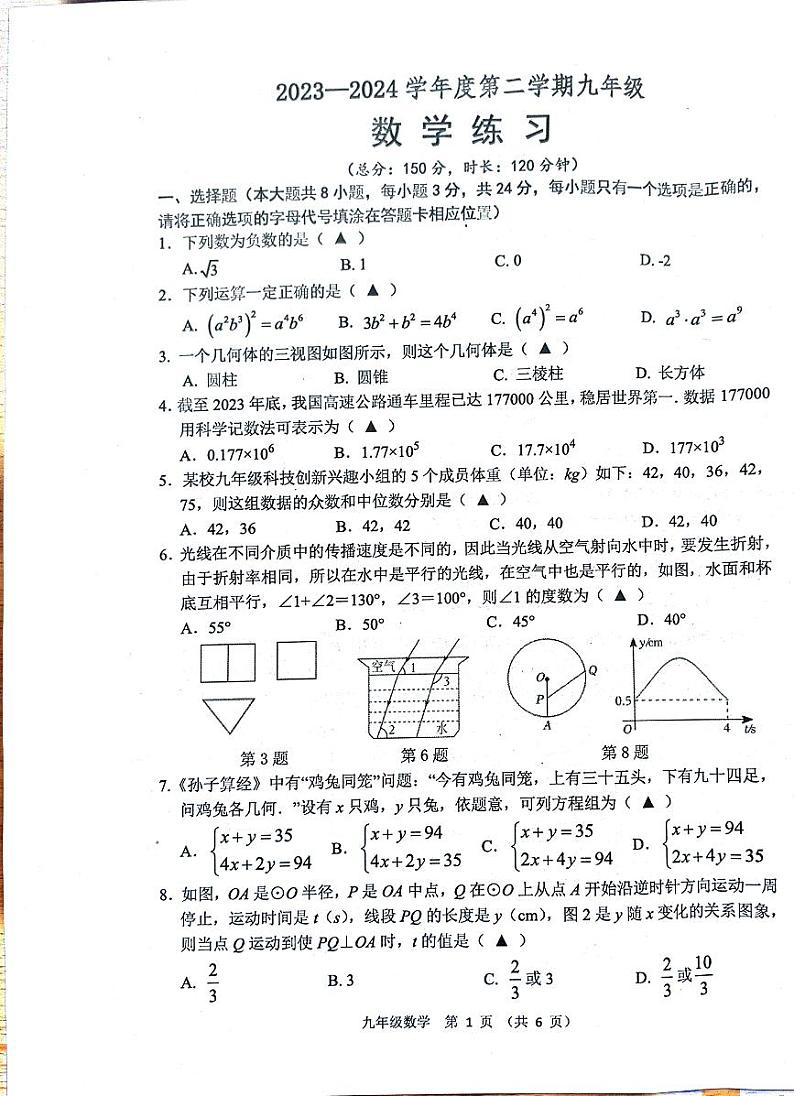 2023—2024 学年度第二学期九年级
数 学 练 习
（总分：150 分，时长：120 分钟）
一、选择题（本大题共 8 小题，每小题 3 分，共 24 分，每小题只有一个选项是正确的，
请将正确选项的字母代号填涂在答题卡相应位置）
1. 下列数为负数的是（ ▲ ）
A. √3 B. 1 C. 0 D. -2
2. 下列运算一定正确的是（ ▲ ）
A. (a²b³)² = a⁴b⁶ B. 3b² + b² = 4b⁴ C. (a⁴)² = a⁶ D. a³·a³ = a⁹
3. 一个几何体的三视图如图所示，则这个几何体是（ ▲ ）
A. 圆柱 B. 圆锥 C. 三棱柱 D. 长方体
4. 截至 2023 年底，我国高速公路通车里程已达 177000 公里，稳居世界第一．数据 177000
用科学记数法可表示为（ ▲ ）
A. 0.177×10⁶ B. 1.77×10⁵ C. 17.7×10⁴ D. 177×10³
5. 某校九年级科技创新兴趣小组的 5 个成员体重（单位：kg）如下：42，40，36，42，
75，则这组数据的众数和中位数分别是（ ▲ ）
A. 42，36 B. 42，42 C. 40，40 D. 42，40
6. 光线在不同介质中的传播速度是不同的，因此当光线从空气射向水中时，要发生折射，
由于折射率相同，所以在水中是平行的光线，在空气中也是平行的，如图，水面和杯
底互相平行，∠1+∠2＝130°，∠3＝100°，则∠1 的度数为（ ▲ ）
A. 55° B. 50° C. 45° D. 40°
空气 1 3 2 水
O Q P A
y/cm 0.5 O 4 t/s
第 3 题 第 6 题 第 8 题
7.《孙子算经》中有“鸡兔同笼”问题：“今有鸡兔同笼，上有三十五头，下有九十四足，
问鸡兔各几何．”设有 x 只鸡，y 只兔，依题意，可列方程组为（ ▲ ）
A. {x+y=35 B. {x+y=94 C. {x+y=35 D. {x+y=94
4x+2y=94 4x+2y=35 2x+4y=94 2x+4y=35
8. 如图，OA 是⊙O 半径，P 是 OA 中点，Q 在⊙O 上从点 A 开始沿逆时针方向运动一周
停止，运动时间是 t（s），线段 PQ 的长度是 y（cm），图 2 是 y 随 x 变化的关系图象，
则当点 Q 运动到使 PQ⊥OA 时，t 的值是（ ▲ ）
A. 2/3 B. 3 C. 2/3 或 3 D. 2/3 或 10/3
九年级数学 第 1 页 （共 6 页）